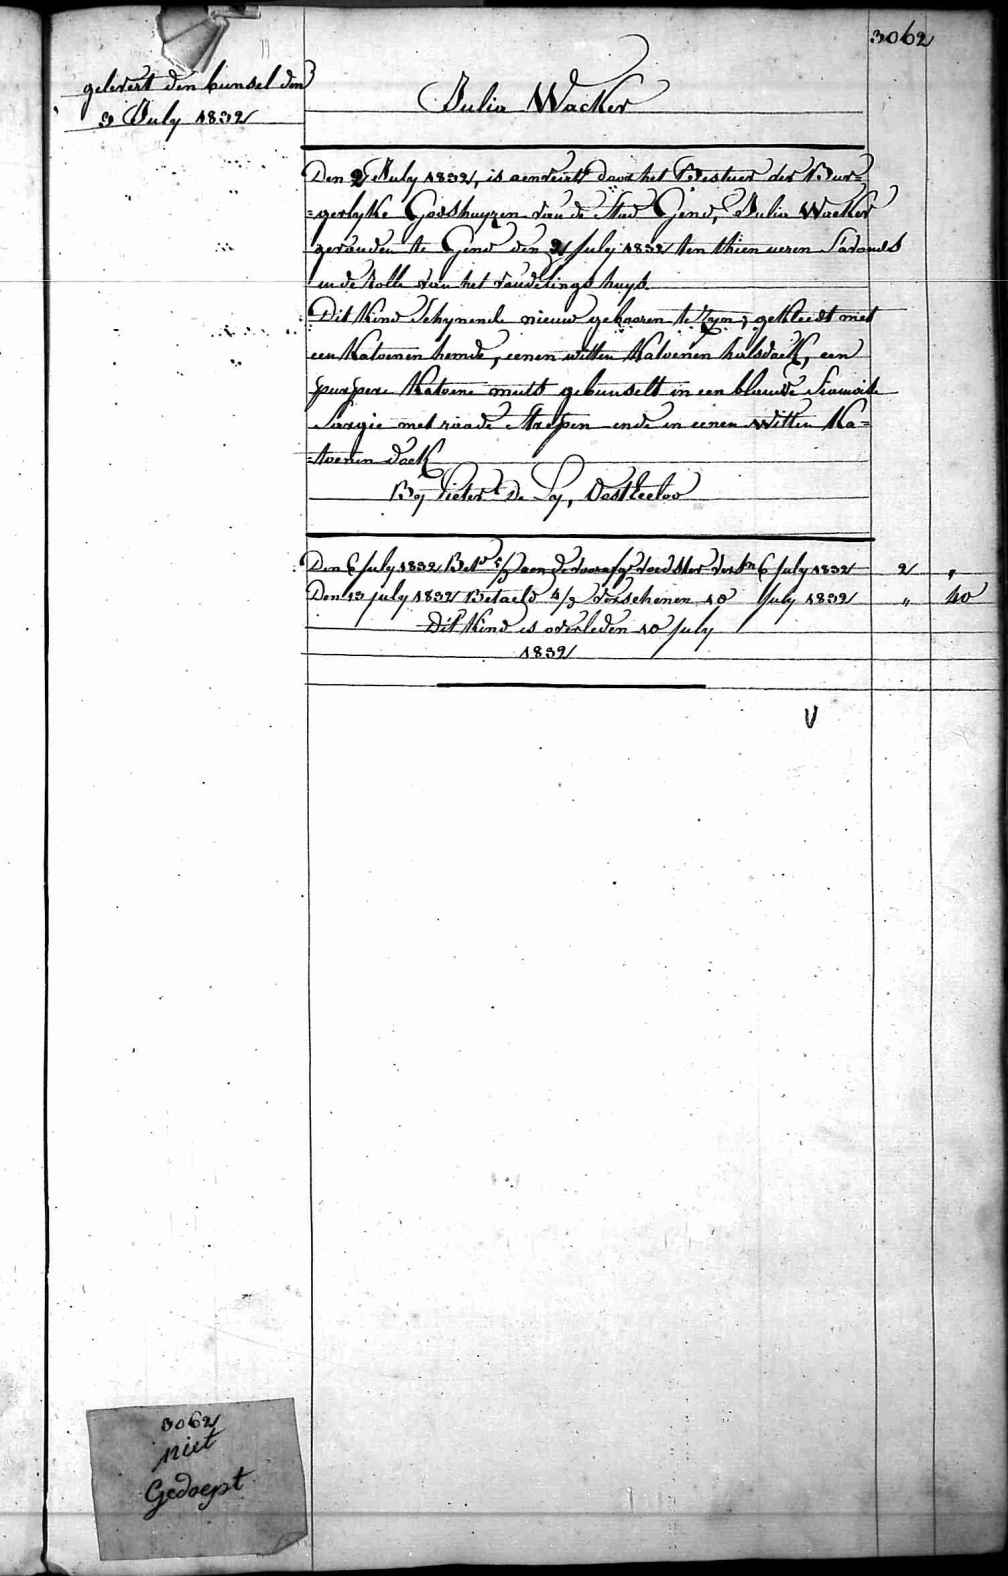 3062
gelevert den bunsel den
3 July 1832
Julia Wacker
Den 2 July 1832, is aenveirt door het Bestuer der Bur=
=gerlyke Godshuyzen van de Stad Gend, Julia Wacker
gevonden te Gend den 2 July 1832 ten thien ueren savonds
in de Rolle van het vondelings huys.
Dit Kind schynende nieuw gebooren te zyn, gekleedt met
een Katoenen hemde, eenen witten Katoenen halsdoek, een
purpere Katoene muts gebunselt in een blauwe Siamoise
Sargie met roode strepen ende in eenen witten Ka=
=toenen doek
By Pieter De Ly, Oosteecloo
Den 6 July 1832 Bet. aen de voedster 6 July 1832 2 "
Den 13 July 1832 Betaeld 4/3 verschenen 10 July 1832 " 40
Dit Kind is overleden 10 July
1832
V
3062
niet
Gedoept